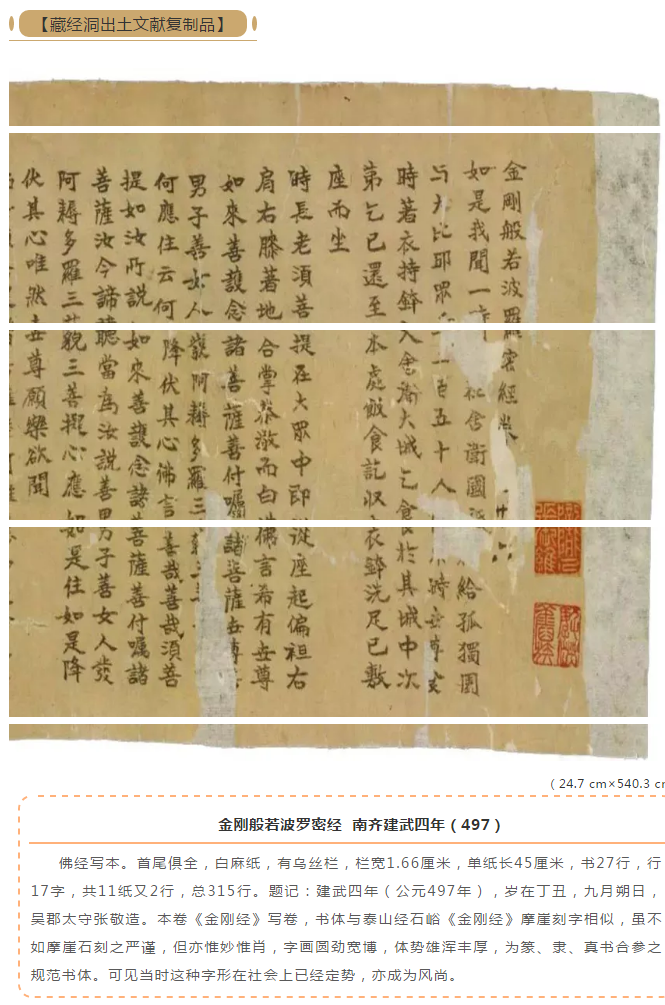 【藏经洞出土文献复制品】
金剛般若波羅密經卷
如是我聞一時 舍衛國 給孤獨園
与大比丘眾 百五十人 時世尊食
時著衣持鉢入舍衛大城乞食於其城中次
第乞已還至本處飯食訖収衣鉢洗足已敷
座而坐
時長老湏菩提在大眾中即從座起偏袒右
肩右膝著地合掌恭敬而白佛言希有世尊
如來善護念諸菩薩善付囑諸菩薩世尊善
男子善女人發阿耨多羅三
何應住云何降伏其心佛言善哉善哉湏菩
提如汝所說如來善護念諸菩薩善付囑諸
菩薩汝今諦聽當為汝說善男子善女人發
阿耨多羅三藐三菩提心應如是住如是降
伏其心唯然世尊願樂欲聞
（24.7 cm×540.3 c
金刚般若波罗密经 南齐建武四年（497）
佛经写本。首尾俱全，白麻纸，有乌丝栏，栏宽1.66厘米，单纸长45厘米，书27行，行
17字，共11纸又2行，总315行。题记：建武四年（公元497年），岁在丁丑，九月朔日，
吴郡太守张敬造。本卷《金刚经》写卷，书体与泰山经石峪《金刚经》摩崖刻字相似，虽不
如摩崖石刻之严谨，但亦惟妙惟肖，字画圆劲宽博，体势雄浑丰厚，为篆、隶、真书合参之
规范书体。可见当时这种字形在社会上已经定势，亦成为风尚。